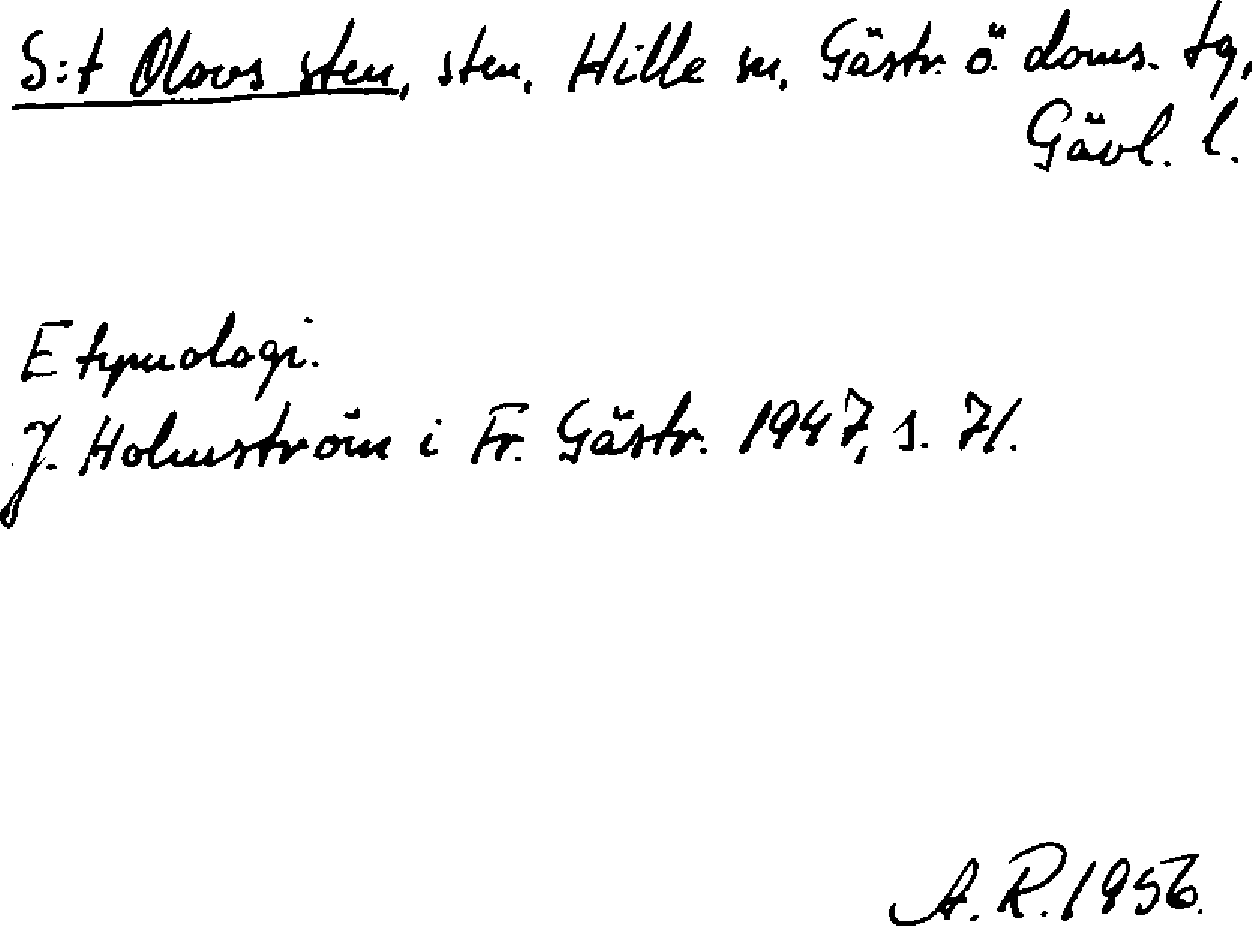 S:t Olovs sten, sten, Hille sn, Gästr. ö. doms. tg,
Gävl. l.
Etymologi.
J. Holmström i Fr. Gästr. 1947, s. 71.
A. R. 1956.